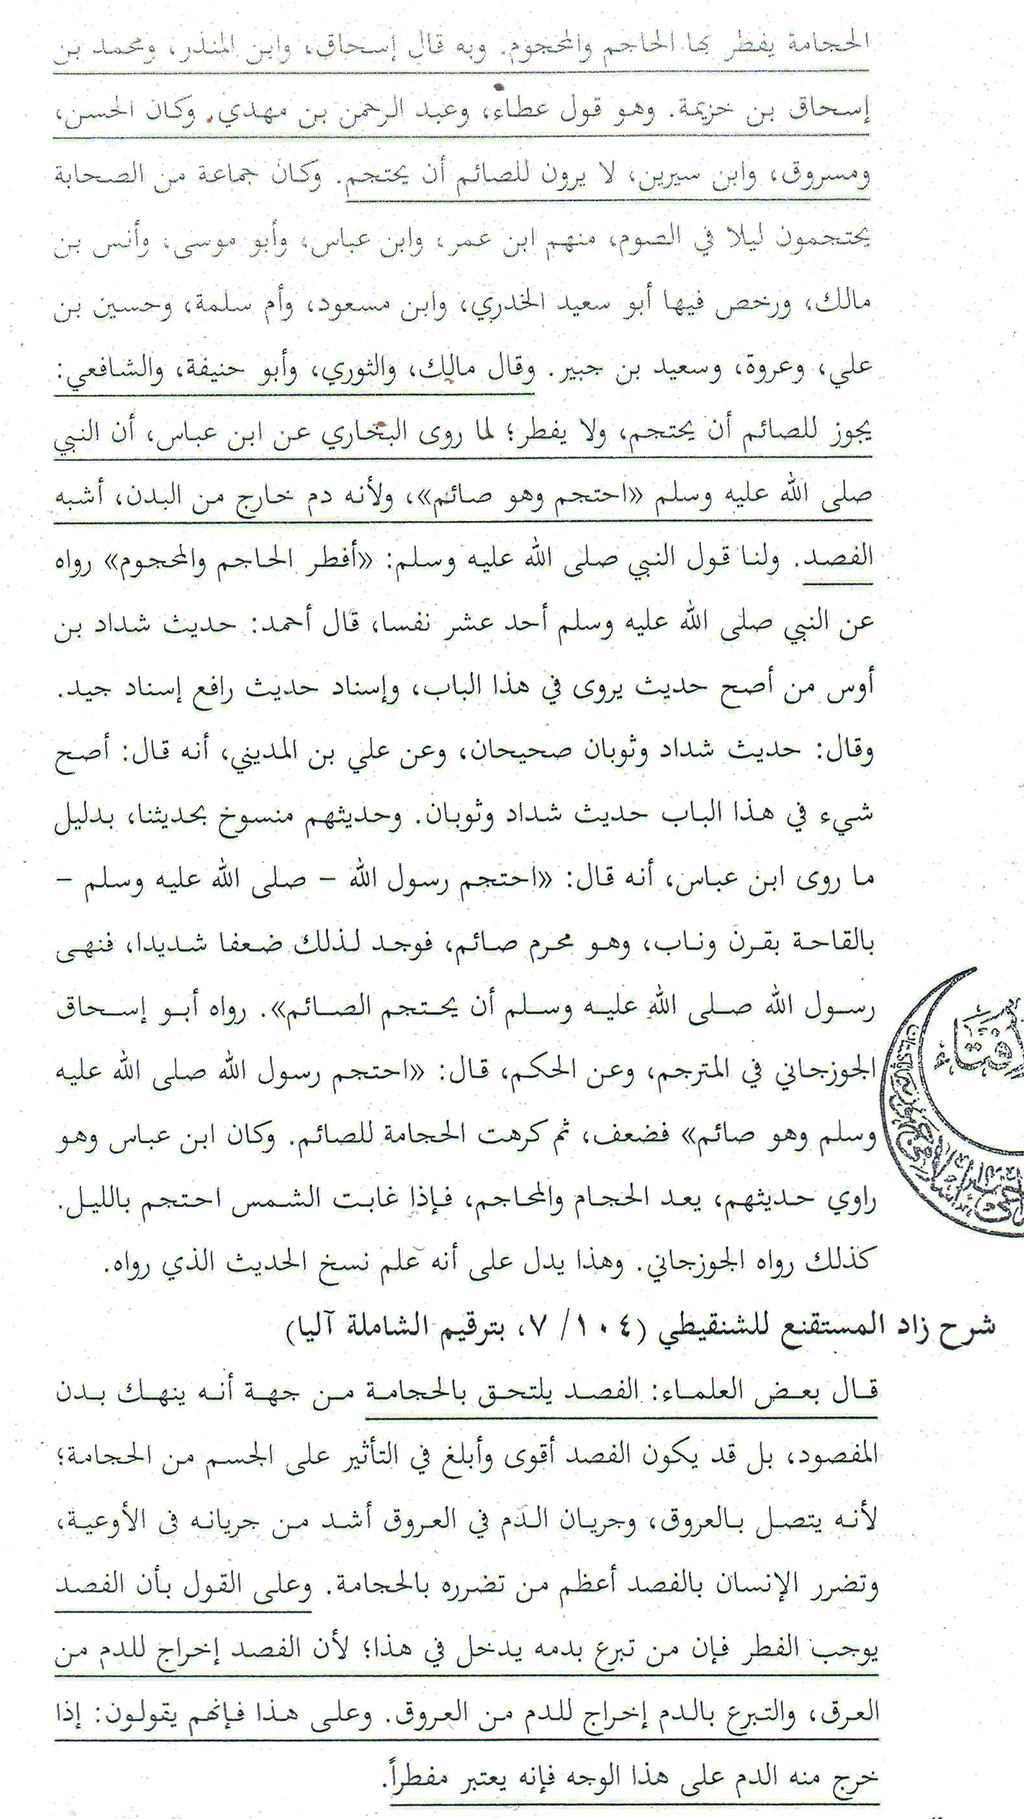 الحجامة يفطر بها الحاجم والمحجوم. وبه قال إسحاق، وابن المنذر، ومحمد بن
إسحاق بن خزيمة. وهو قول عطاء، وعبد الرحمن بن مهدي. وكان الحسن،
ومسروق، وابن سيرين، لا يرون للصائم أن يحتجم. وكان جماعة من الصحابة
يحتجمون ليلا في الصوم، منهم ابن عمر، وابن عباس، وأبو موسى، وأنس بن
مالك، ورخص فيها أبو سعيد الخدري، وابن مسعود، وأم سلمة، وحسين بن
علي، وعروة، وسعيد بن جبير. وقال مالك، والثوري، وأبو حنيفة، والشافعي:
يجوز للصائم أن يحتجم، ولا يفطر؛ لما روى البخاري عن ابن عباس، أن النبي
صلى الله عليه وسلم «احتجم وهو صائم»، ولأنه دم خارج من البدن، أشبه
الفصد. ولنا قول النبي صلى الله عليه وسلم: «أفطر الحاجم والمحجوم» رواه
عن النبي صلى الله عليه وسلم أحد عشر نفسا، قال أحمد: حديث شداد بن
أوس من أصح حديث يروى في هذا الباب، وإسناد حديث رافع إسناد جيد.
وقال: حديث شداد وثوبان صحيحان، وعن علي بن المديني، أنه قال: أصح
شيء في هذا الباب حديث شداد وثوبان. وحديثهم منسوخ بحديثنا، بدليل
ما روى ابن عباس، أنه قال: «احتجم رسول الله – صلى الله عليه وسلم –
بالقاحة بقرن وناب، وهو محرم صائم، فوجد لذلك ضعفا شديدا، فنهى
رسول الله صلى الله عليه وسلم أن يحتجم الصائم». رواه أبو إسحاق
الجوزجاني في المترجم، وعن الحكم، قال: «احتجم رسول الله صلى الله عليه
وسلم وهو صائم» فضعف، ثم كرهت الحجامة للصائم. وكان ابن عباس وهو
راوي حديثهم، يعد الحجام والمحاجم، فإذا غابت الشمس احتجم بالليل.
كذلك رواه الجوزجاني. وهذا يدل على أنه علم نسخ الحديث الذي رواه.
شرح زاد المستقنع للشنقيطي (١٠٤/ ٧، بترقيم الشاملة آليا)
قال بعض العلماء: الفصد يلتحق بالحجامة من جهة أنه ينهك بدن
المفصود، بل قد يكون الفصد أقوى وأبلغ في التأثير على الجسم من الحجامة؛
لأنه يتصل بالعروق، وجريان الدم في العروق أشد من جريانه فى الأوعية،
وتضرر الإنسان بالفصد أعظم من تضرره بالحجامة. وعلى القول بأن الفصد
يوجب الفطر فإن من تبرع بدمه يدخل في هذا؛ لأن الفصد إخراج للدم من
العرق، والتبرع بالدم إخراج للدم من العروق. وعلى هذا فإنهم يقولون: إذا
خرج منه الدم على هذا الوجه فإنه يعتبر مفطراً.